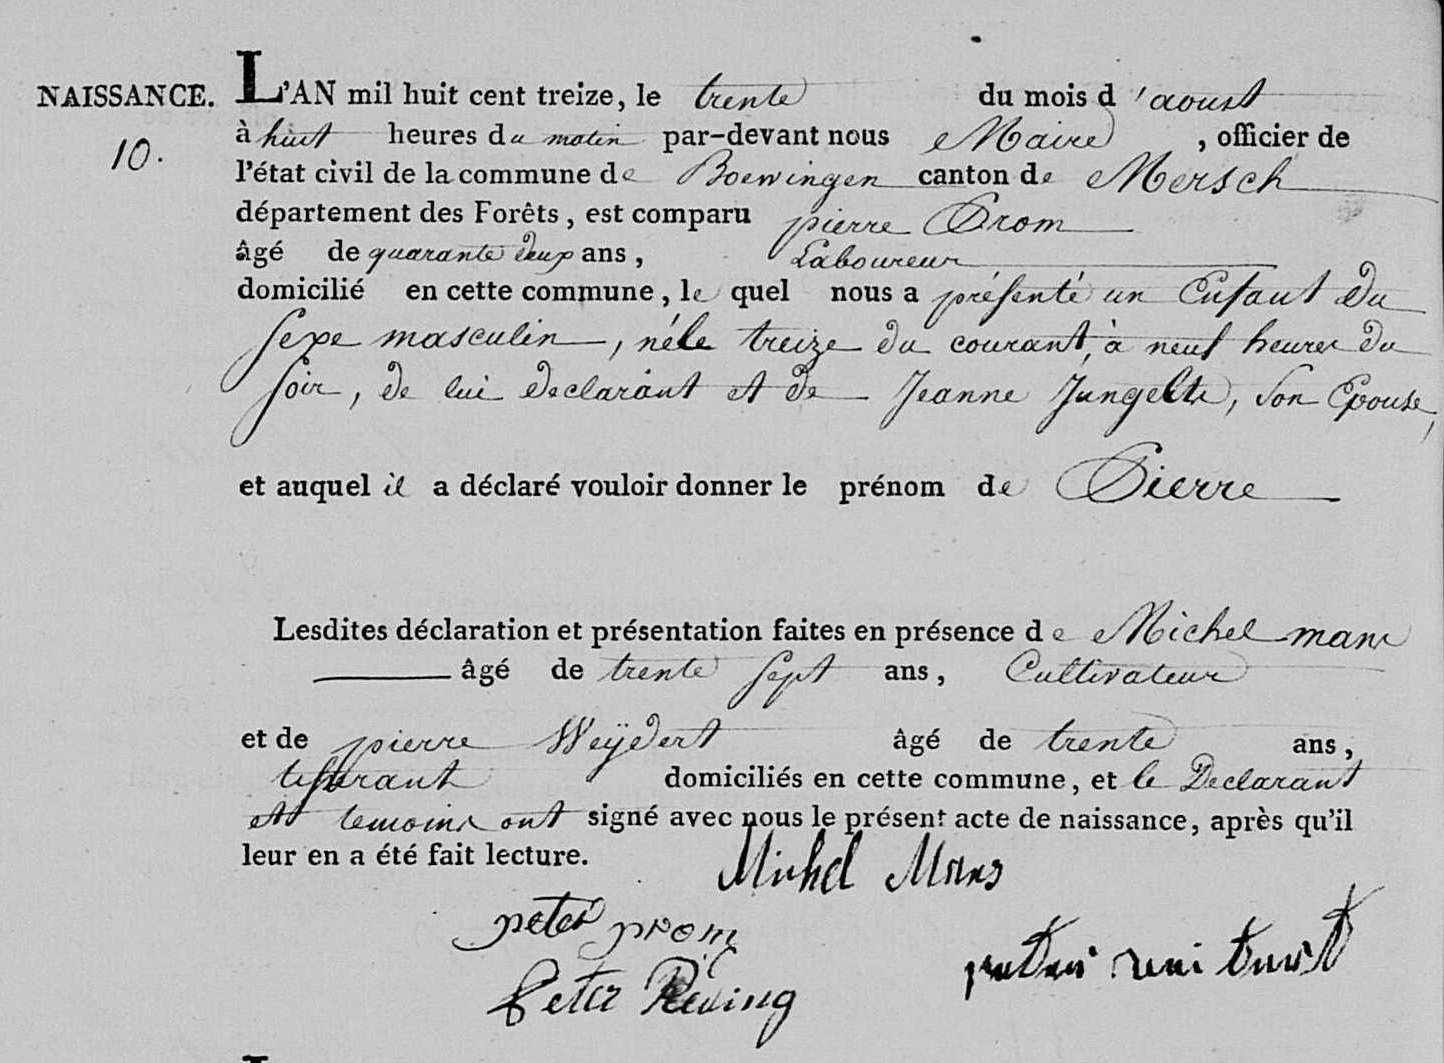 NAISSANCE. L'AN mil huit cent treize, le trente du mois d'aoust
10. à huit heures du matin par-devant nous Maire, officier de
l'état civil de la commune de Boewingen canton de Mersch
département des Forêts, est comparu pierre Prom
âgé de quarante deux ans, Laboureur
domicilié en cette commune, le quel nous a présenté un Enfant du
sexe masculin, né le treize du courant, à neuf heures du
soir, de lui declarant et de Jeanne Jungels, son Epouse,
et auquel il a déclaré vouloir donner le prénom de Pierre
Lesdites déclaration et présentation faites en présence de Michel mans
âgé de trente sept ans, Cultivateur
et de pierre Weÿdert âgé de trente ans,
tisserant domiciliés en cette commune, et le Declarant
et temoins ont signé avec nous le présent acte de naissance, après qu'il
leur en a été fait lecture.
Michel Mans
peter prom
Peter Reding